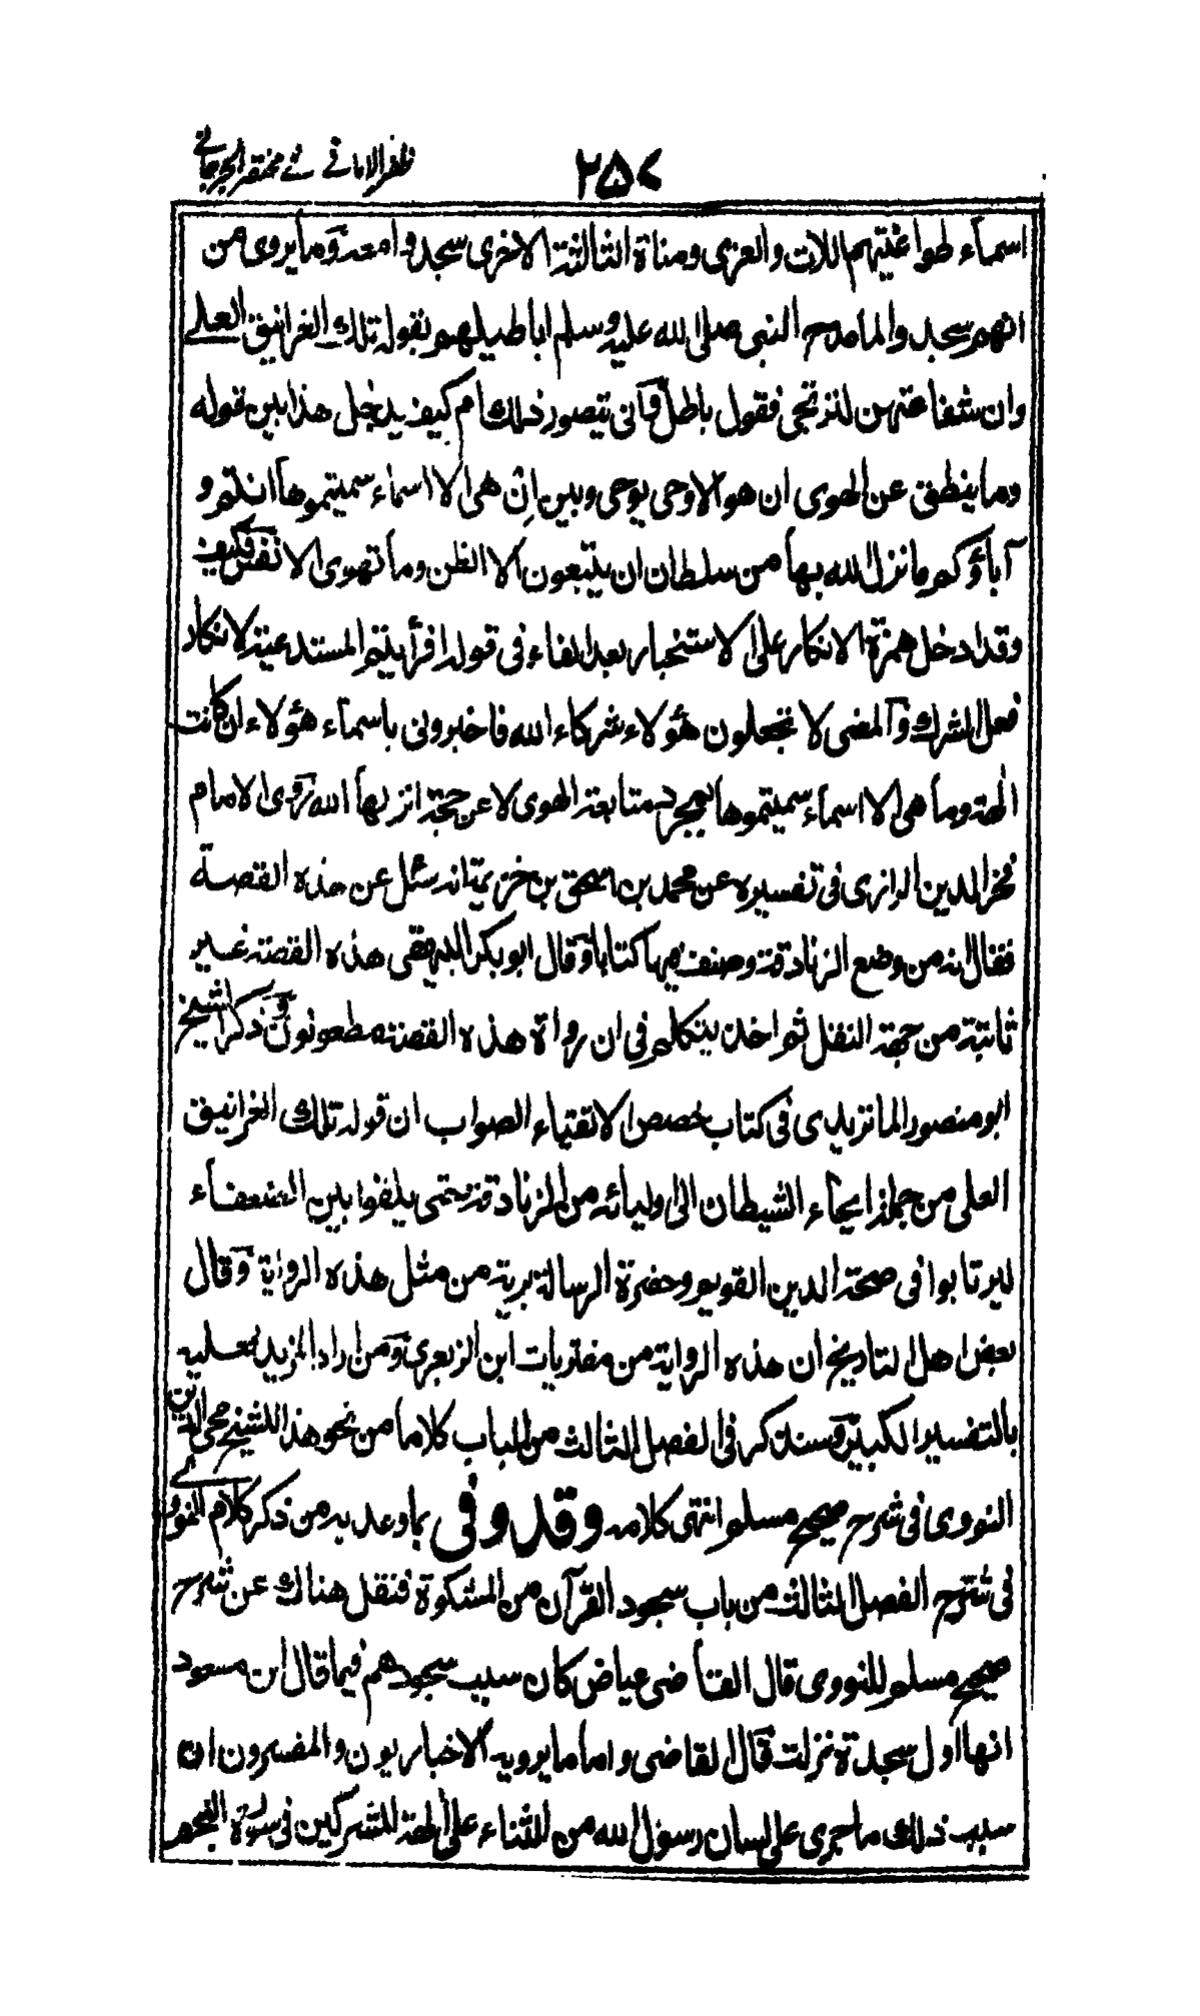 ٢٥٧
ظفر الامانے فے مختصر الجرجانے
اسماء طواغيتهم اللات والعزى ومناة الثالثة الاخرى سجدوا معه وما يروى من
انهم سجدوا لما مدح النبى صلى الله عليه وسلم اباطيلهم بقوله تلك الغرانيق العلے
وان شفاعتهن لترتجى فقول باطل وانى يتصور ذلك ام كيف يدخل هذا بين قوله
وما ينطق عن الهوى ان هو الا وحى يوحى وبين ان هى الا اسماء سميتموها انتم و
آباؤكم ما نزل الله بها من سلطان ان يتبعون الا الظن وما تهوى الانفس فكيف
وقد ادخل همزة الانكار على الاستخبار بعد الفاء فى قوله افرأيتم المستدعية لانكار
فعل الشرك والمعنى لا تجعلون هؤلاء شركاء الله فاخبرونى باسماء هؤلاء ان كانت
الهة وما هى الا اسماء سميتموها بمجرد متابعة الهوى لا عن حجة انزلها الله روى الامام
فخر الدين الرازى فى تفسيره عن محمد بن اسحق بن خزيمة انه سئل عن هذه القصة
فقال انه من وضع الزنادقة وصنف فيها كتابا وقال ابو بكر البيهقى هذه القصة غير
ثابتة من جهة النقل ثم اخذ يتكلم فى ان رواة هذه القصة مطعونون وذكر الشيخ
ابو منصور الماتريدى فى كتاب خصص الاتقياء الصواب ان قوله تلك الغرانيق
العلى من جملة ايحاء الشيطان الى اوليائه من الزنادقة حتى يلقوا بين الضعفاء
ليرتابوا فى صحة الدين القويم وحضرة الرسالة برية من مثل هذه الرواية وقال
بعض اهل التاريخ ان هذه الرواية من مفتريات ابن الزبعرى ومن اراد المزيد فعليه
بالتفسير الكبير وسنذكر فى الفصل الثالث من الباب كلاما من نحو هذا للشيخ محى الدين
النووى فى شرح صحيح مسلم انتهى كلامه وقد وفى بما وعد به من ذكر كلام النووے
فى شرح الفصل الثالث من باب سجود القرآن من المشكوة فنقل هناك عن شرح
صحيح مسلم للنووى قال القاضى عياض كان سبب سجودهم فيما قال ابن مسعود
انها اول سجدة نزلت قال القاضى واما ما يرويه الاخباريون والمفسرون ان
سبب ذلك ما جرى على لسان رسول الله من الثناء على الهة المشركين فى سورة النجم